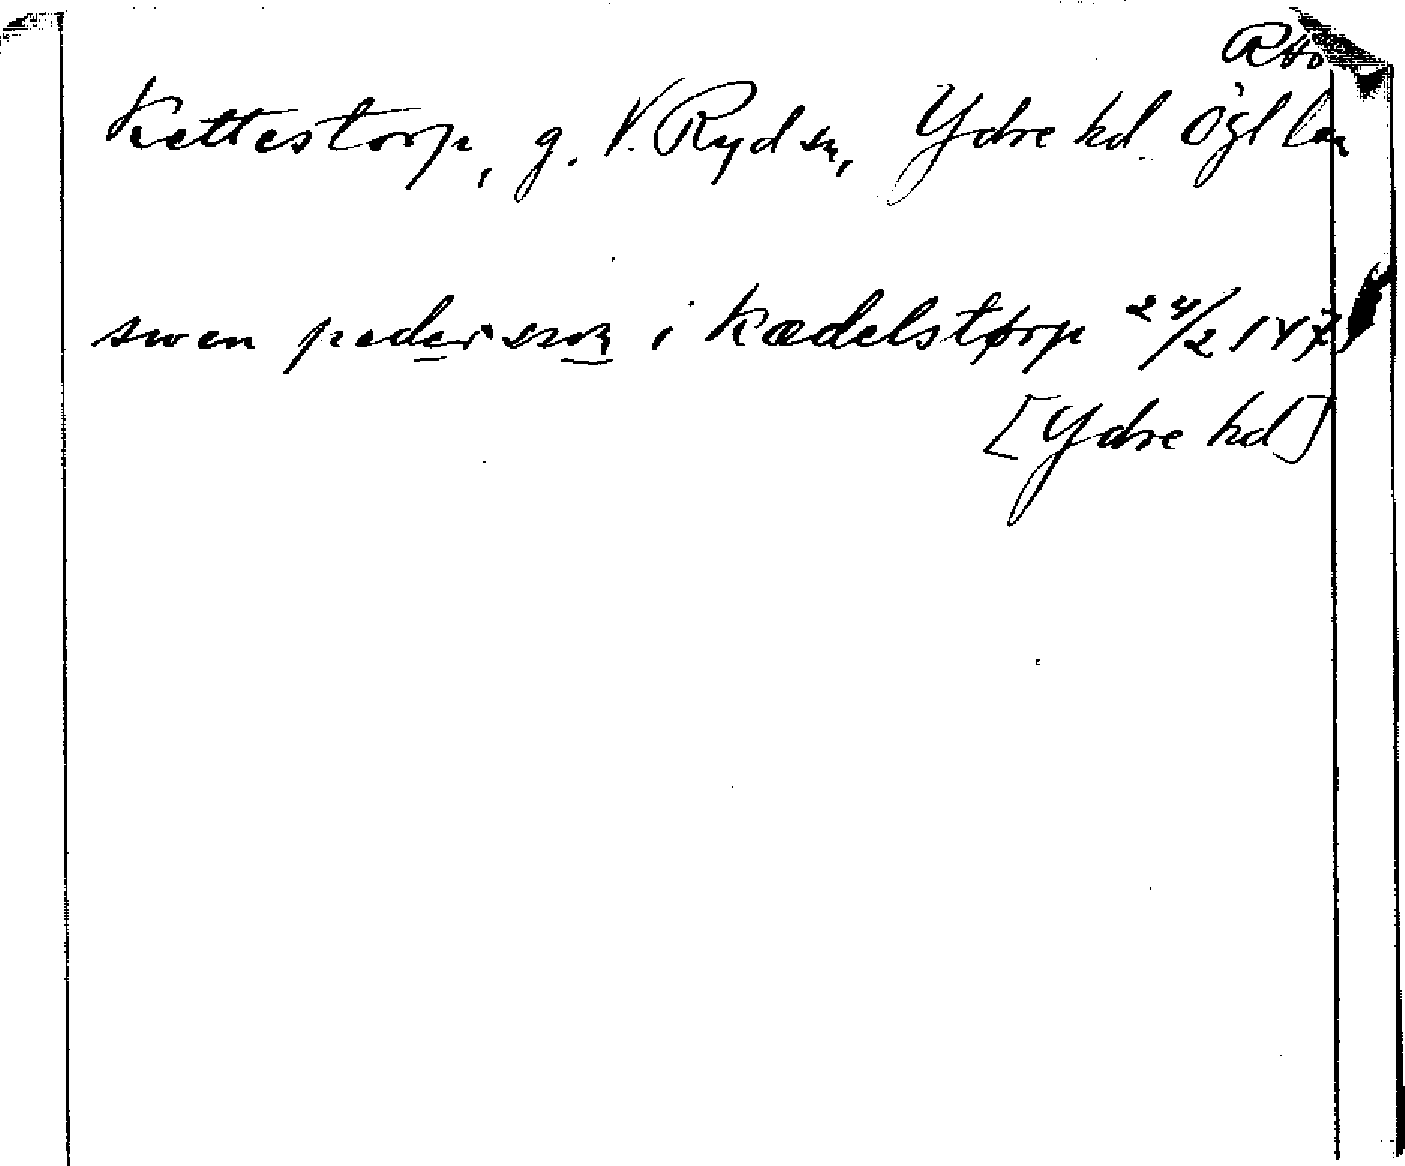 RHo
Kettestorp, g. V. Ryd sn, Ydre hd. Ögl län
swen pedersson i kædelstørp 24/2 147
[Ydre hd]